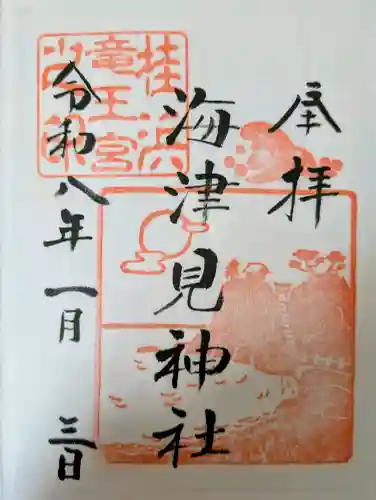 奉拝
海津見神社
令和八年一月三日
桂浜
竜王宮
之印